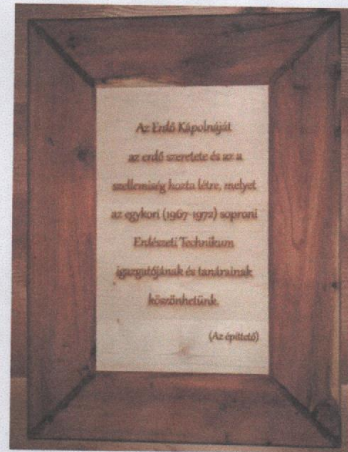 Az Erdő Kápolnáját
az erdő szeretete és az a
szellemiség hozta létre, melyet
az egykori (1967-1972) soproni
Erdészeti Technikum
igazgatójának és tanárainak
köszönhetünk.
(Az építtető)